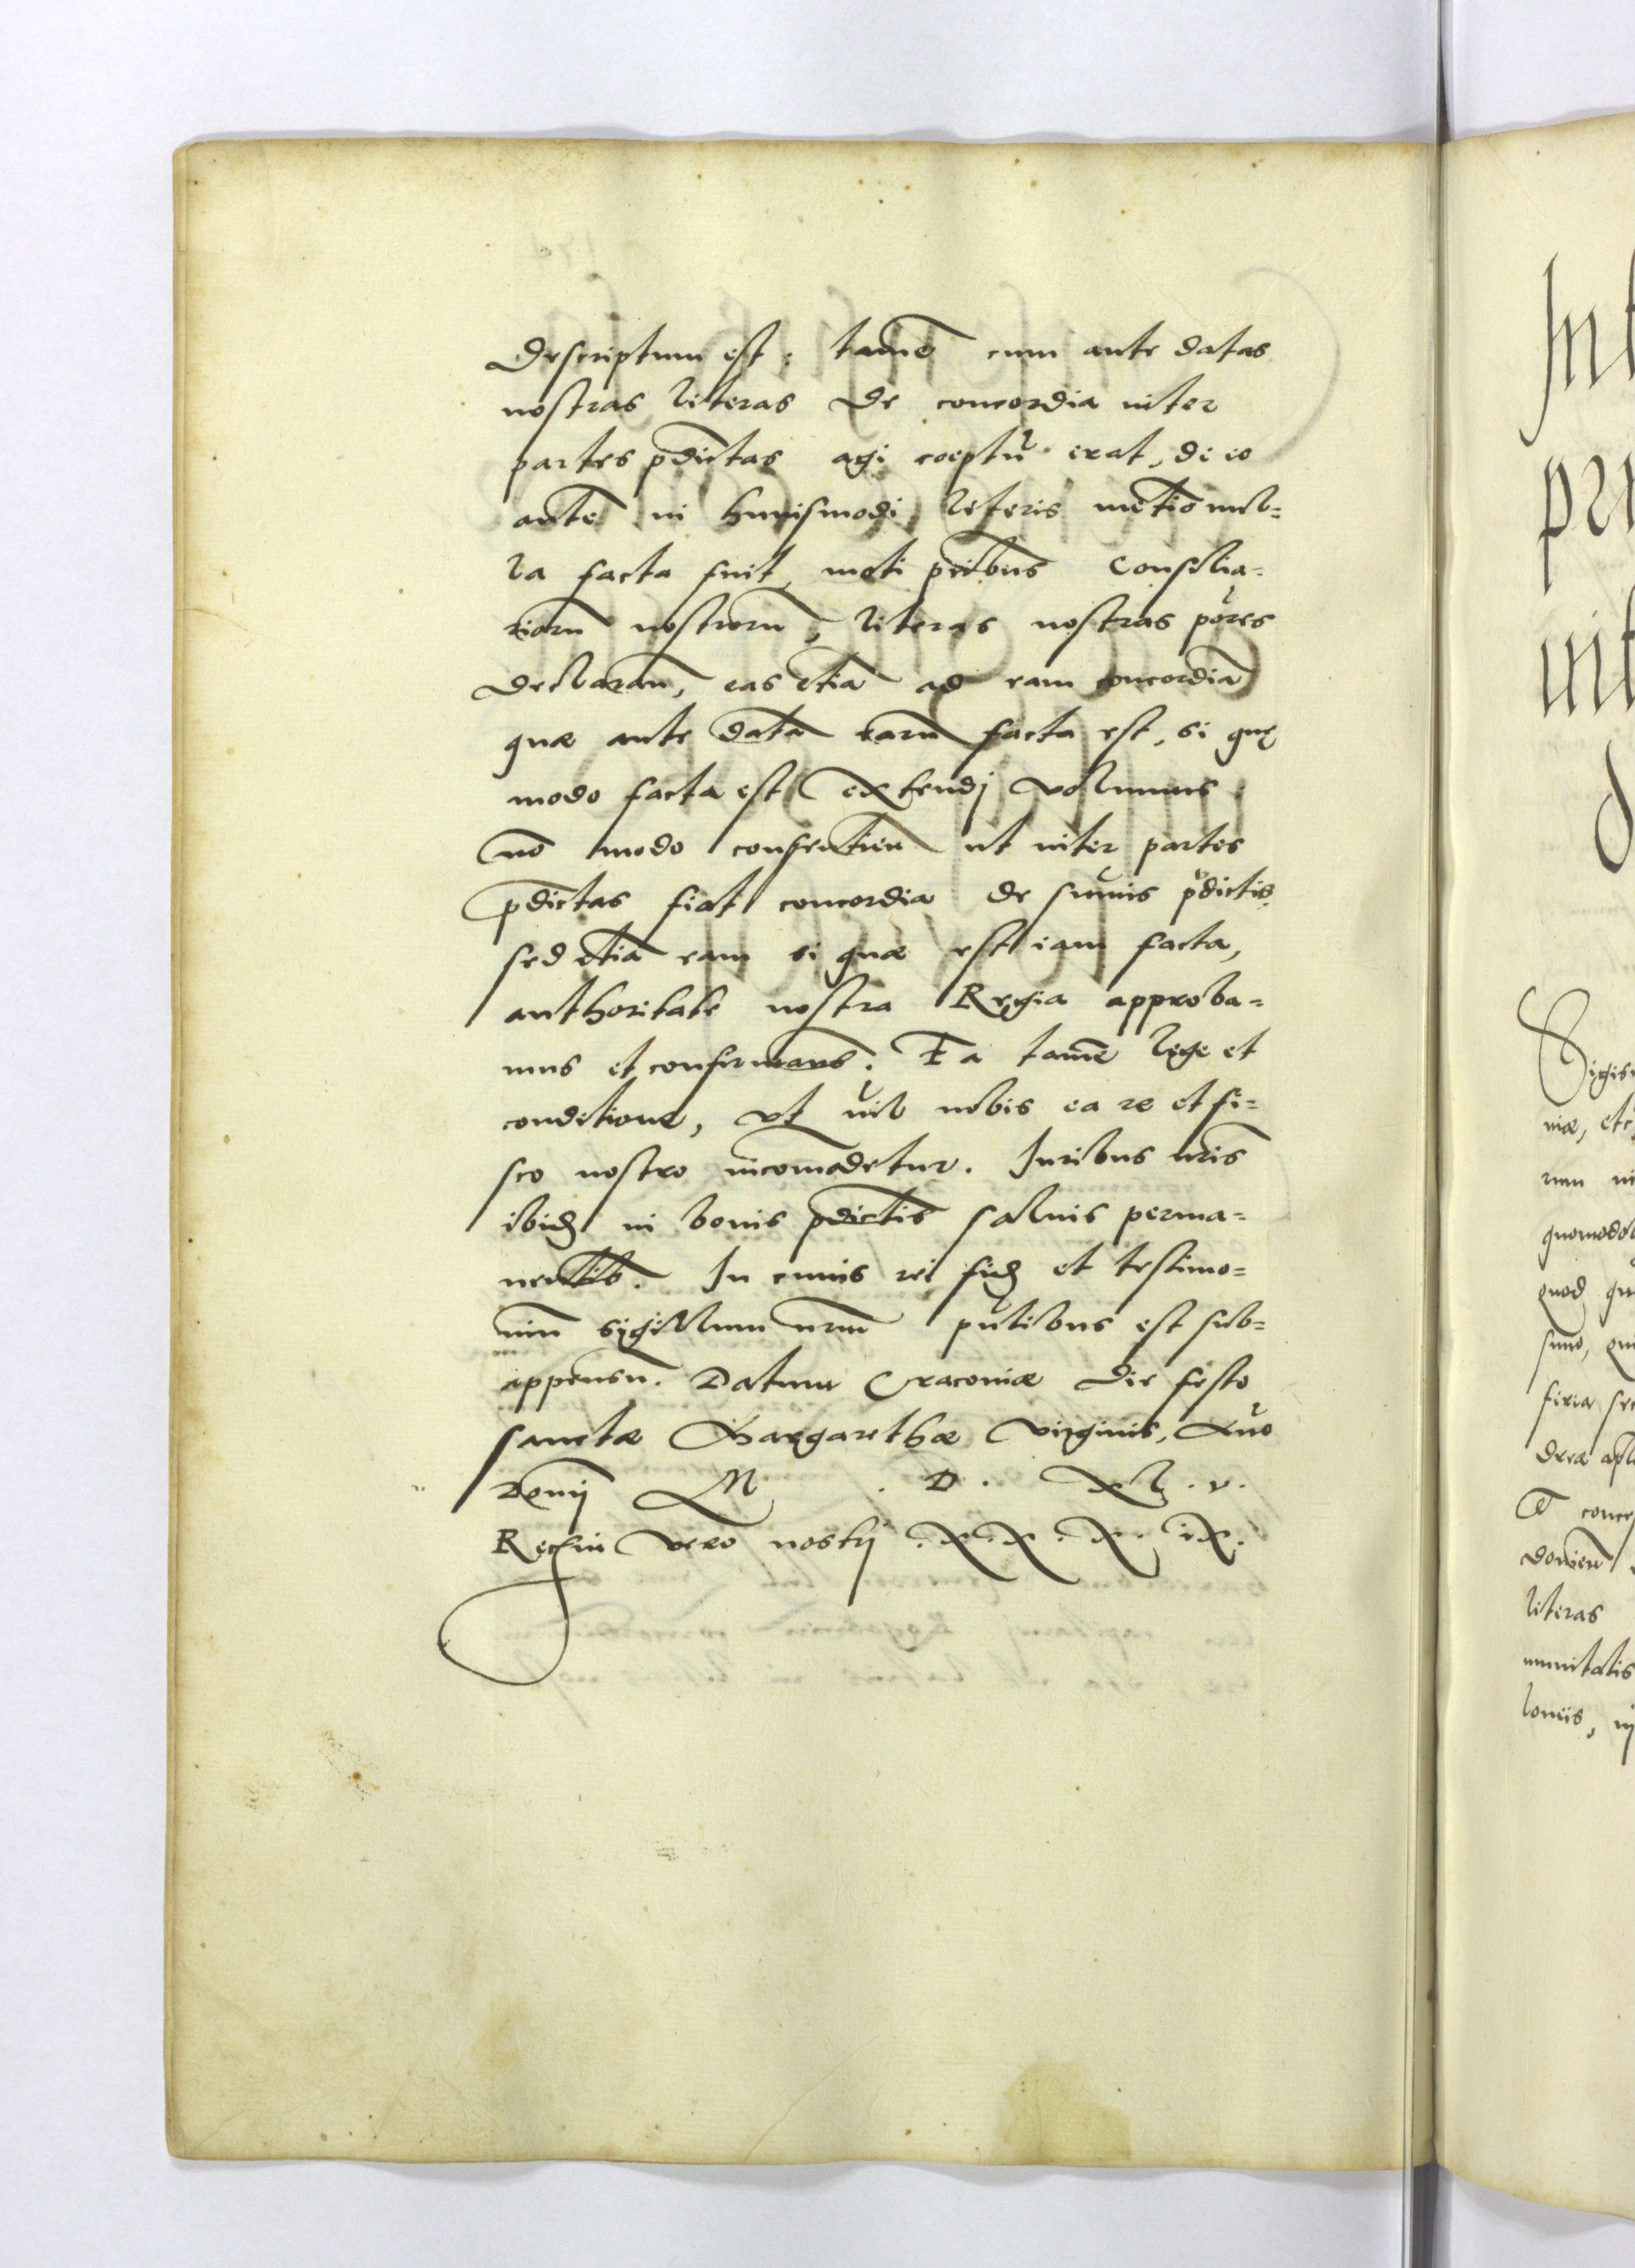 descriptum est: tamē cum ante datas
nostras literas de concordia inter
partes p̄dictas agi coeptū erat, de eo
autē in huiusmodi literis mētio nul=
la facta fuit, moti p̄cibus Consilia=
riorū nostrorū, literas nostras p̄ores
declaran̄, eas etiā ad eam concordiā
quæ ante datā earū facta est, si quę
modo facta est extendj volumus
nō modo consentien̄ ut inter partes
p̄dictas fiat concordia de sum̄is p̄dictis,
sed etiā eam si quæ est iam facta,
authoritate nostra Regia approba=
mus et confirmam̄s. Ea tamē lege et
conditione, vt nil nobis ea re et fi=
sco nostro incōmodetur. Iuribus nr̄is
ibid in bonis p̄dictis saluis perma=
nentib. In cuius rei fid et testimo=
niū sigillum nrm̄ pn̄tibus est sub=
appensū. Datum Cracoviæ die festo
sanctæ Margarethæ virginis, Anō
Domij M. D. xl. v.
Regni vero nostrj .X.X.X.iX.
Int
pri
int
d
Sigis
niæ, etc
rum in
quomodol
quod qu
sumo, qu
feria se
dreæ apl
Et conce
donien̄
literas
munitatis
loniis, ij